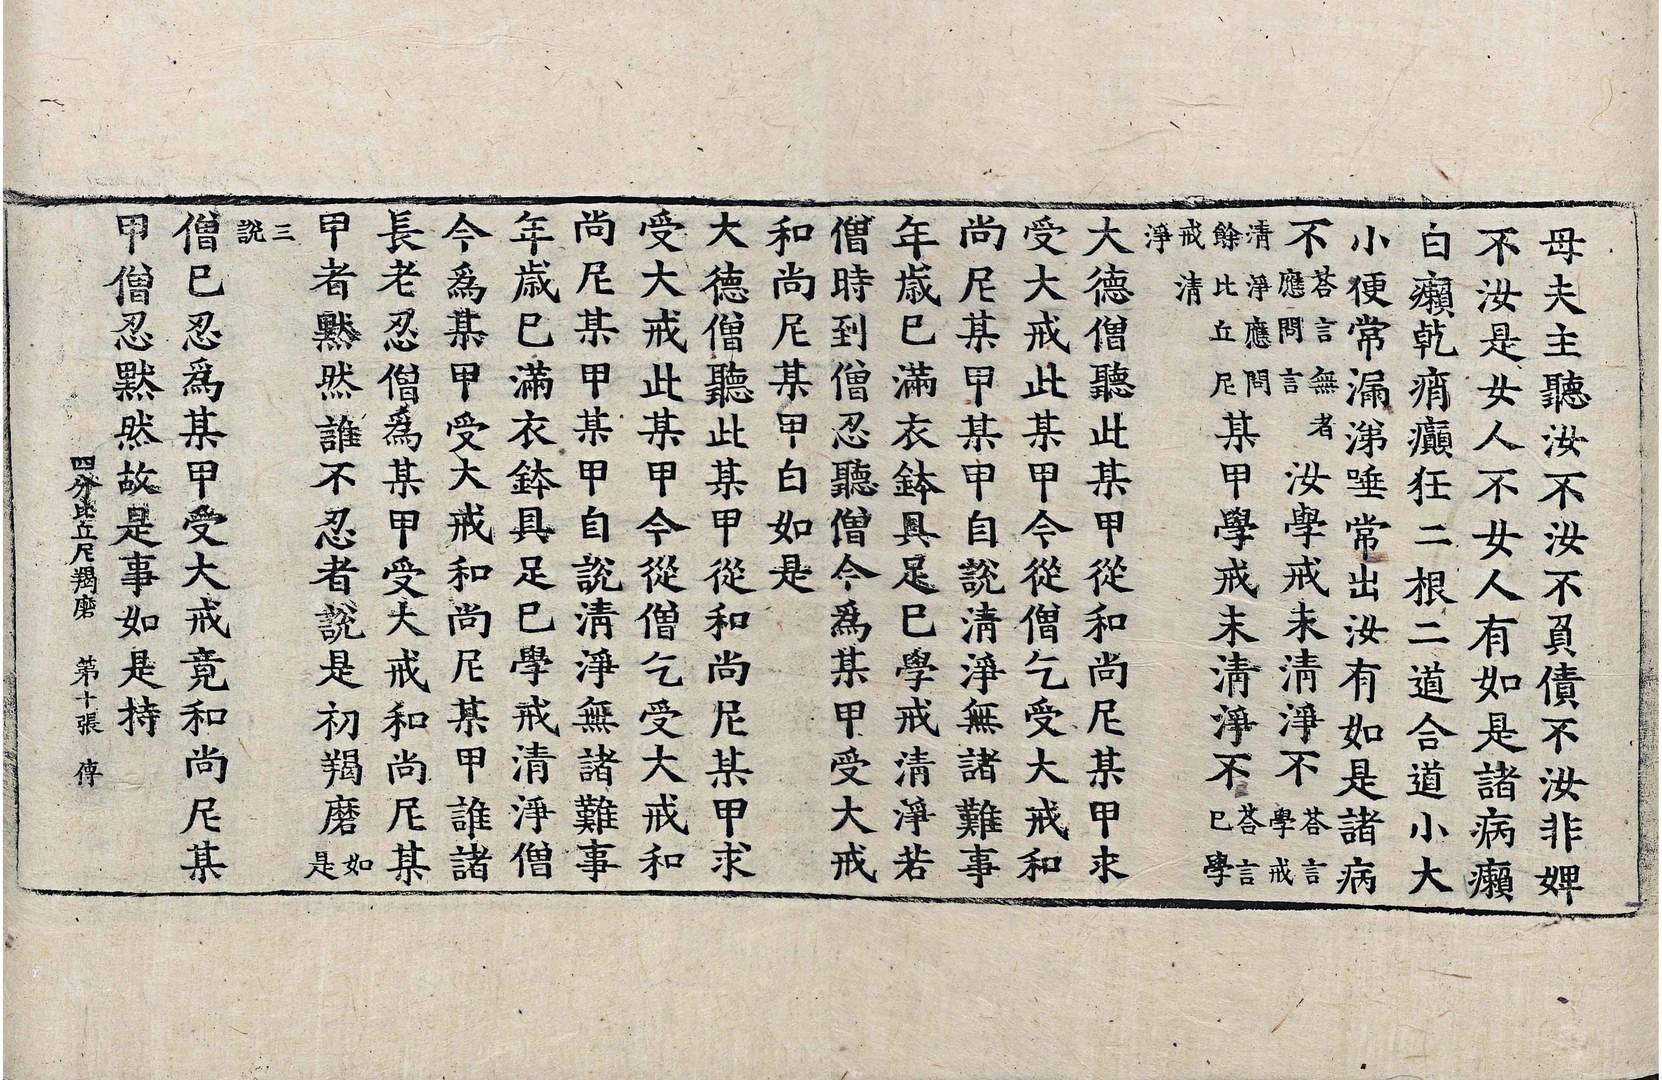 母夫主聽汝不汝不負債不汝非婢
不汝是女人不女人有如是諸病癩
白癩乾痟癲狂二根二道合道小大
小便常漏涕唾常出汝有如是諸病
不荅言無者應問言汝學戒未清淨不荅言學戒
清淨應問餘比丘尼某甲學戒未清淨不荅言已學
戒清淨
大德僧聽此某甲從和尚尼某甲求
受大戒此某甲今從僧乞受大戒和
尚尼某甲某甲自說清淨無諸難事
年歲已滿衣鉢具足已學戒清淨若
僧時到僧忍聽僧今爲某甲受大戒
和尚尼某甲白如是
大德僧聽此某甲從和尚尼某甲求
受大戒此某甲今從僧乞受大戒和
尚尼某甲某甲自說清淨無諸難事
年歲已滿衣鉢具足已學戒清淨僧
今爲某甲受大戒和尚尼某甲誰諸
長老忍僧爲某甲受大戒和尚尼某
甲者默然誰不忍者說是初羯磨如是
三說
僧已忍爲某甲受大戒竟和尚尼某
甲僧忍默然故是事如是持
四分比丘尼羯磨 第十張 傳